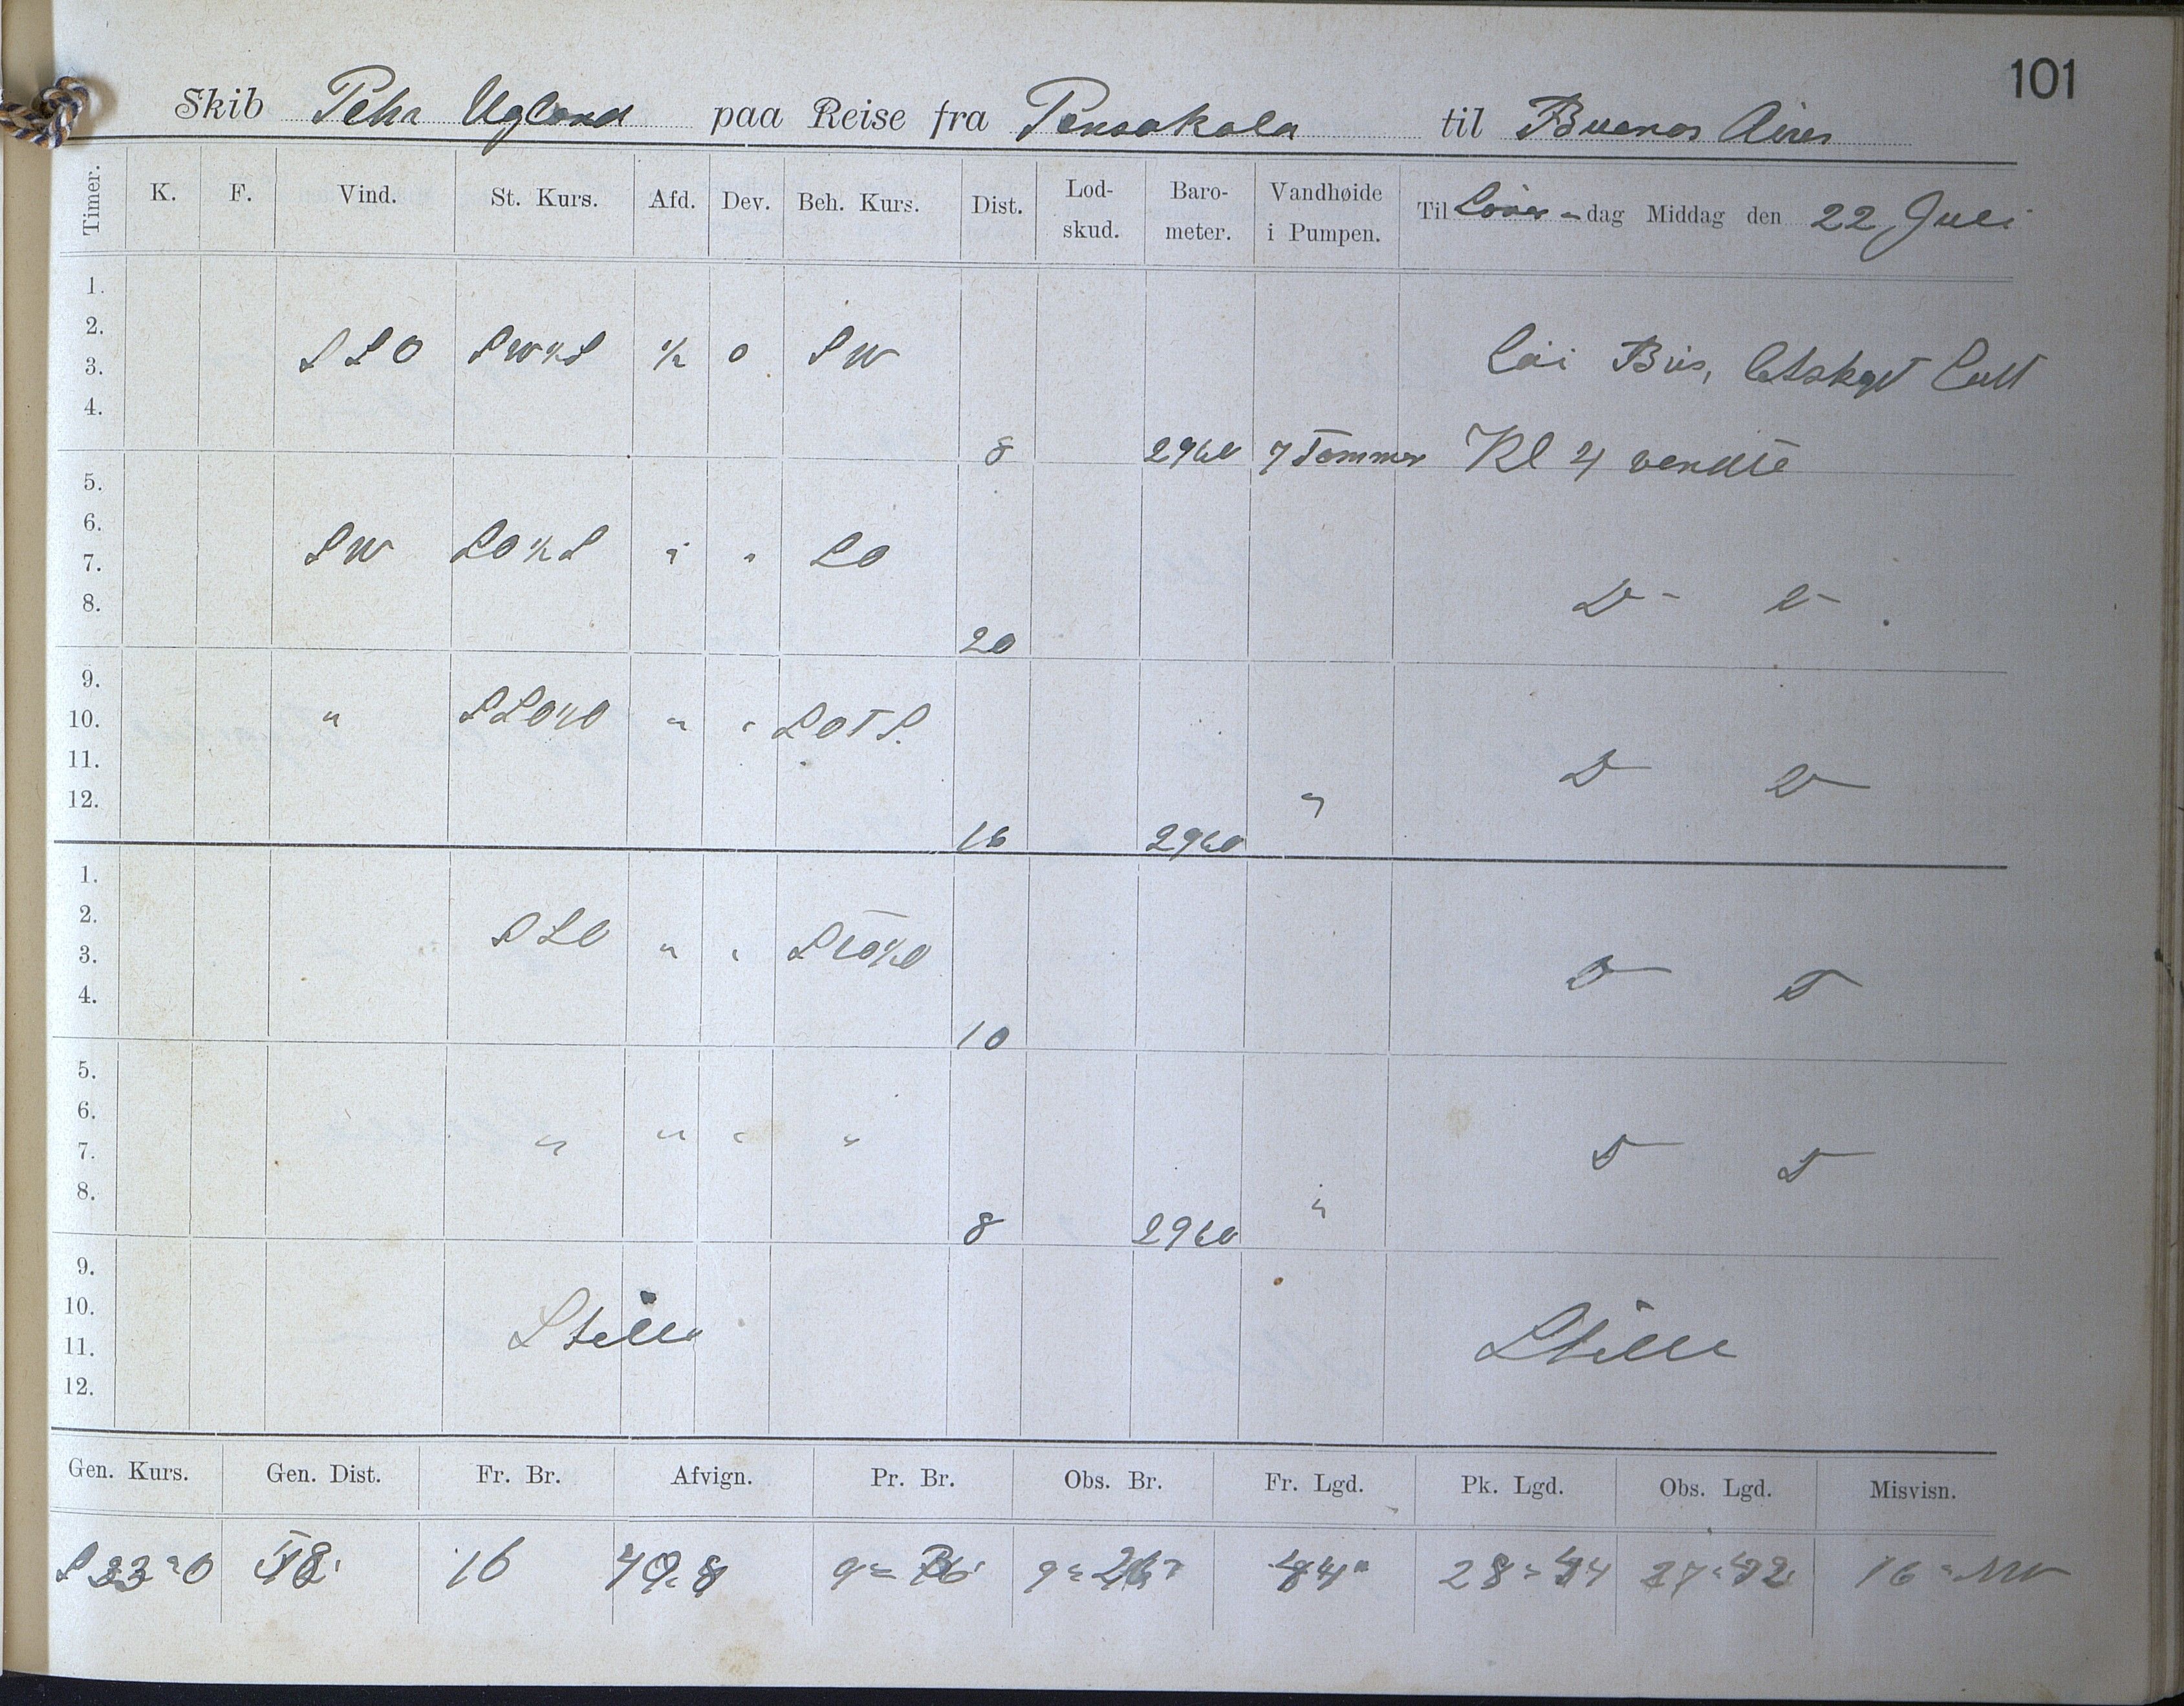 101
Skib Peha Ugland paa Reise fra Pensakola til Buenos Aires
Timer. K. F. Vind. St. Kurs. Afd. Dev. Beh. Kurs. Dist. Lod-skud. Baro-meter. Vandhøide i Pumpen. Til Löver-dag Middag den 22 Juli
1.
2.
3. SSO SW½S ½ 0 SW Lai Bris, letskyet Luft
4. 8 2960 7 Tommer Kl 4 vendte
5.
6.
7. SW SO½S " " SO
8. 20 D- D-
9.
10. " SSO½O " " SOTS.
11. D D
12. 16 2960 "
1.
2.
3. SSO " " SSO½O
4. 10 D D
5.
6.
7. " " " " D D
8. 8 2960 "
9.
10.
11. Stille Stille
12.
Gen. Kurs. Gen. Dist. Fr. Br. Afvign. Pr. Br. Obs. Br. Fr. Lgd. Pk. Lgd. Obs. Lgd. Misvisn.
S 33°O 16 9° 9° 26' 44" 28° 16°NW